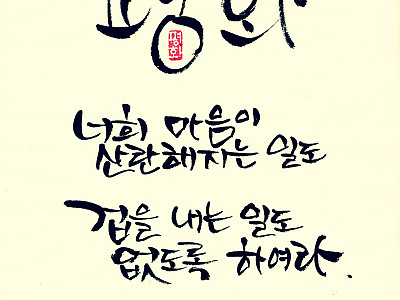 평화
너희 마음이
산란해지는 일도
겁을 내는 일도
없도록 하여라.